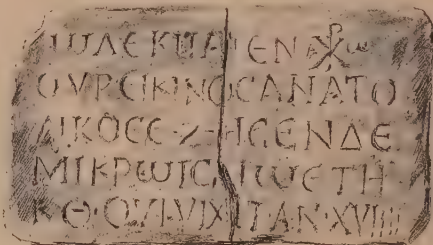 ΙωΔΕ ΚΙΤΑΙ ΕΝ ☧ω
ΟΥΡΕΙΚΙΝΟϹ ΑΝΑΤΟ
ΛΙΚΟϹ Ϲ·Ζ·ΗϹΕΝ ΔΕ
ΜΙΚΡω ΕΤΗ
ΚΘ·QVI·VIXIT AN·XVIIII